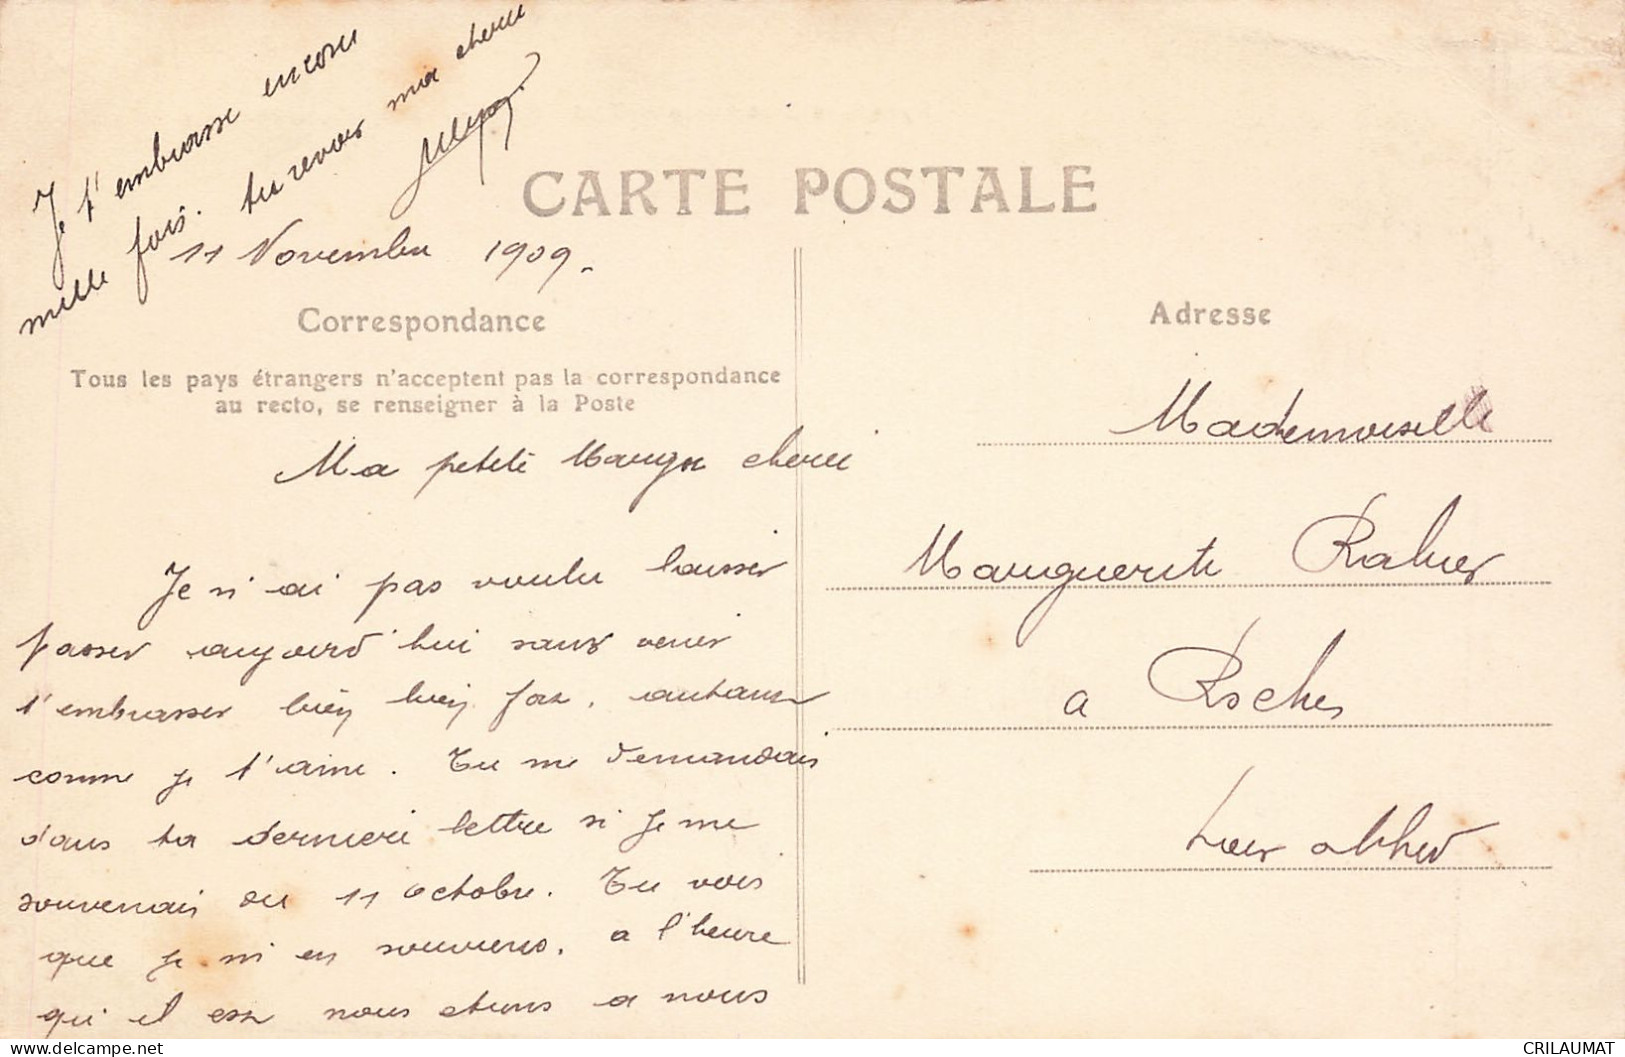 Je t'embrasse encore
mille fois. tu revois ma cherie
CARTE POSTALE
11 Novembre 1909.
Correspondance
Tous les pays étrangers n'acceptent pas la correspondance
au recto, se renseigner à la Poste
Ma petite cherie
Je n'ai pas voulu laisser
passer aujourd'hui sans venir
t'embrasser bien bien for, autant
comme je t'aime. Tu me demandais
dans ta derniere lettre si je me
souvenais du 11 octobre. Tu vois
que je m'en souviens. a l'heure
qu'il est nous etions a nous
Adresse
Mademoiselle
Marguerite
a
CRILAUMAT